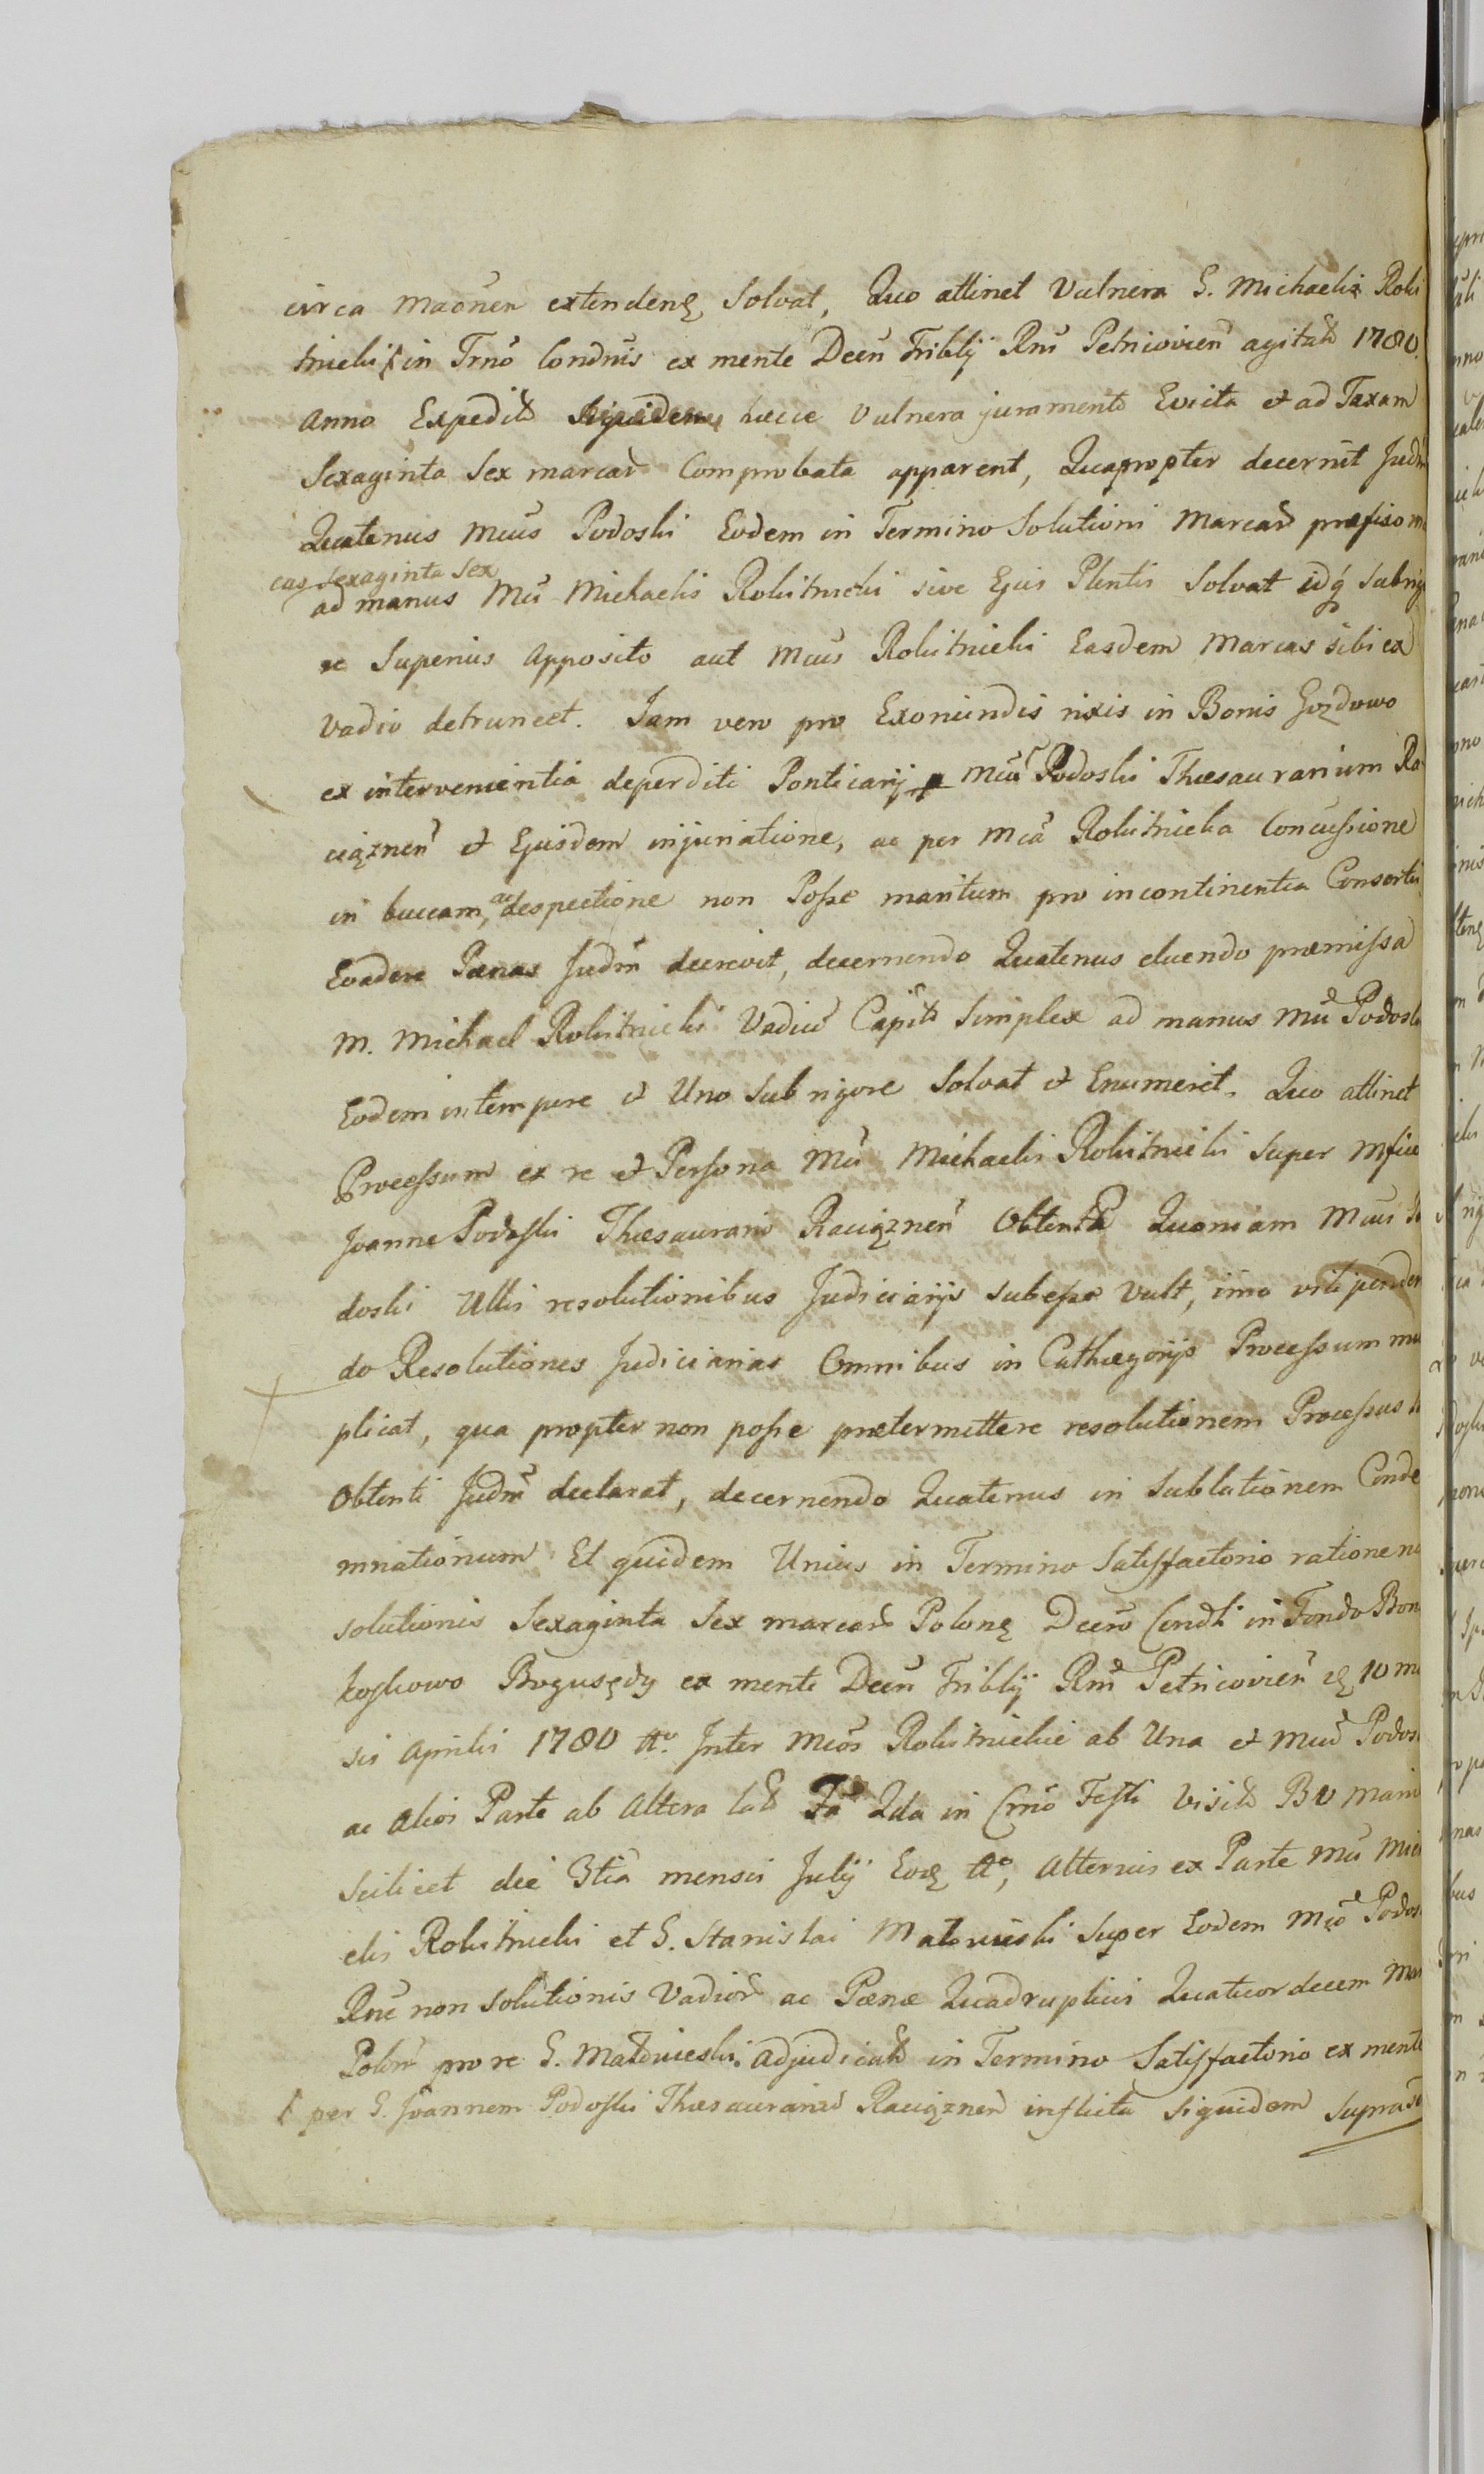 circa Maōnen extendenę solvat, Quo attinet Vulnera G. Michaelis Roki
tnicki in Trnō Condnis ex mente Decū Triblij Rnī Petricovien agitat 1780
Anno Expedit Siquidem hæcce Vulnera juramento Evicta et ad Taxam
Sexaginta Sex marcar Comprobata apparent, Quapropter decernit Judm
Quatenus Mcus Podoski Eodem in Termino Solutioni Marcar præfixo
cas Sexaginta Sex
ad manus Mci Michaelis Rokitnicki sive Ejus Plentis solvat idq sub
re Superius Apposito aut Mcus Rokitnicki Easdem Marcas sibi ex
Vadio detruncet. Jam vero pro Exoriundis rixis in Bonis Gozdowo
ex intervenientia deperditi Ponticarij p Mcū Podoski Thesaurarium Ra
ciąznen et Ejusdem injuriatione, ac per Mcā Rokitnicka Concussione
in buccam, ac despectione non Posse maritum pro incontinentia Consortis
Evadere Pœnas Judm decrevit, decernendo Quatenus eluendo præmissa
M. Michael Rokitnicki Vadiū Capitis Simplex ad manus Mci Podoski
Eodem intempore et Uno sub rigore Solvat et Enumeret. Quo attinet
Processum ex re et Persona Mci Michaelis Rokitnicki super Mfico
Joanne Podoski Thesaurario Raciąznen Obtentū Quoniam Mcus
doski Ullis resolutionibus Judiciarijs subesse vult, imo vilipenden
do Resolutiones Judiciarias Omnibus in Cathegorijs Processum mu
plicat, qua propter non posse prætermittere resolutionem Processus
Obtenti Judm declarat, decernendo Quatenus in Sublationem Conde
mnationum Et quidem Unius in Termino Satisfactorio ratione
solutionis Sexaginta Sex marcar Polonę Decro Condti in Fundo Bon
Koskowo Bogusędy ex mente Decū Triblij Rnī Petricovien 10
sis Aprilis 1780 Ao. Inter Mcos Rokitnickie ab Una et Mcū Podos
ac Alios Parte ab Altera lat Fā Qda in Crnō Festi Visit BV Mari
scilicet die 3tia mensis Julij Eod Ao, Alterius ex Parte Mci Mich
elis Rokitnicki et G. Stanislai Matowieski super Eodem Mco Podos
Rne non solutionis Vadior ac Pœnæ Quadruplicis Quatuordecem Mar
Polon pro re G. Matowieski adjudicat in Termino Satisfactorio ex mente
per G. Joannem Podoski Thesaurariū Raciąznen inflicta siquidem supra